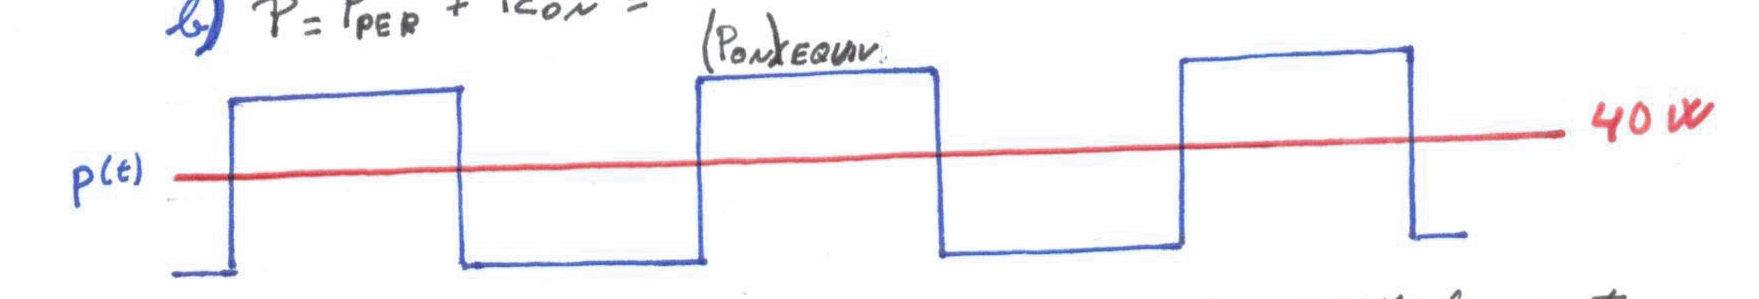 b) P = P_PER + P_CON =
(P_ON)EQUIV.
40 W
p(t)